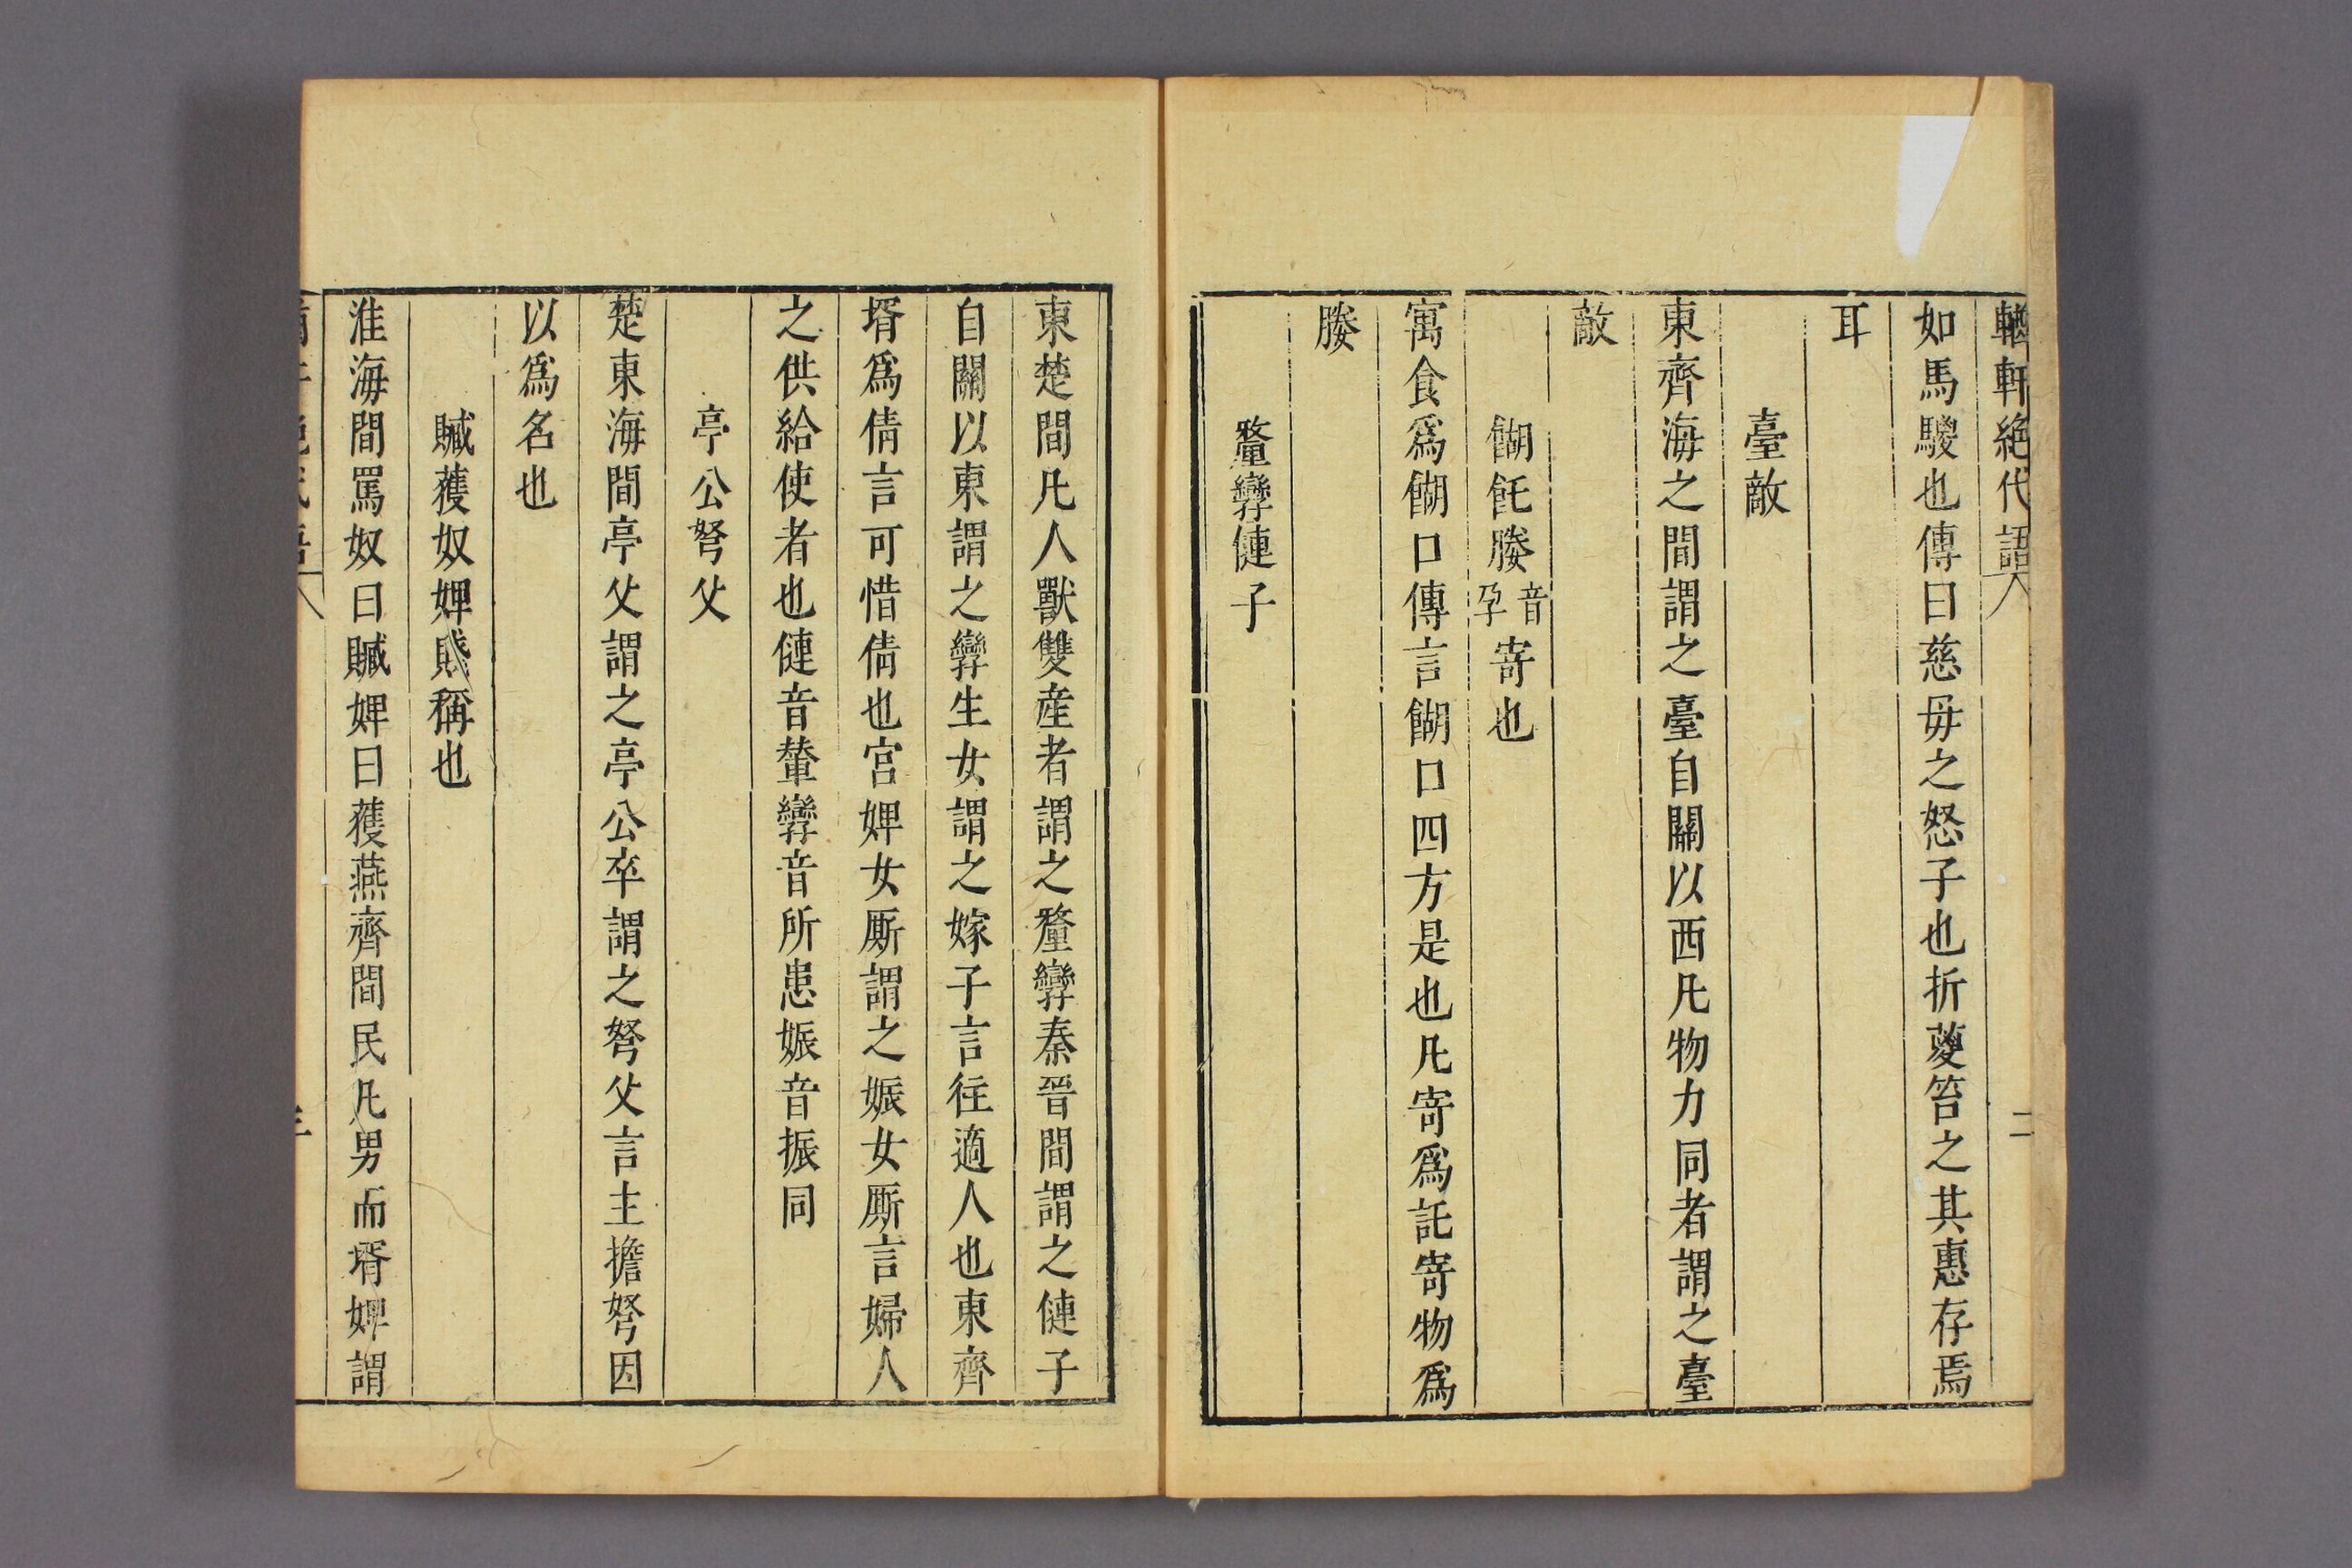 輶軒絕代語 二
如馬騣也傳曰慈毋之怒子也折葼笞之其惠存焉
耳
臺敵
東齊海之間謂之臺自關以西凡物力同者謂之臺
敵
餬飥媵音孕寄也
寓食爲餬口傳言餬口四方是也凡寄爲託寄物爲
媵
釐孿健子
東楚間凡人獸雙産者謂之釐孿秦晉間謂之健子
自關以東謂之孿生女謂之嫁子言往適人也東齊
壻爲倩言可惜倩也宮婢女厮謂之娠女厮言婦人
之供給使者也健音輦孿音所患娠音振同
亭公弩父
楚東海間亭父謂之亭公卒謂之弩父言主擔弩因
以爲名也
贓蒦奴婢賤稱也
淮海間罵奴曰贓婢曰蒦燕齊間民凡男而壻婢謂